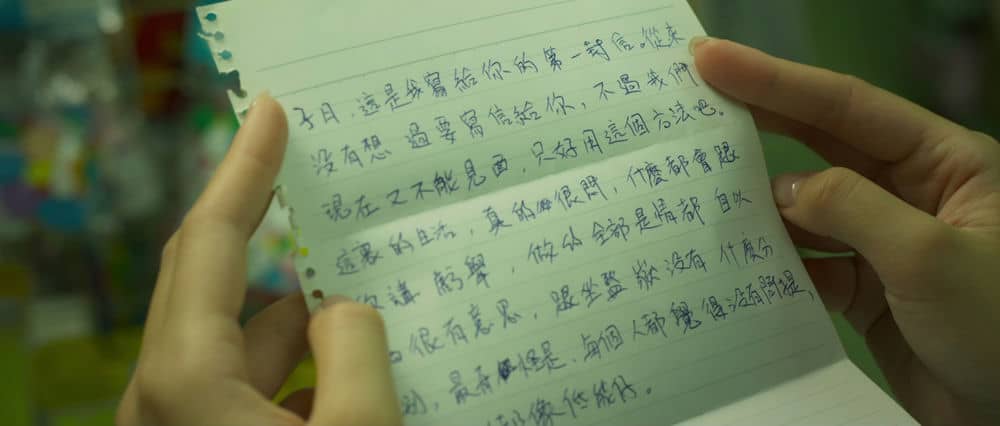 子月,這是我寫給你的第一封信。從來
沒有想過要寫信給你,不過我們
現在又不能見面,只好用這個方法吧。
這裏的生活,真的很悶,什麼都會跟
你講 ,做的全部是情都自以
很有意思,跟坐監獄沒有什麼分
別,最奇怪是,每個人都覺得沒有問題、
好像低能仔。